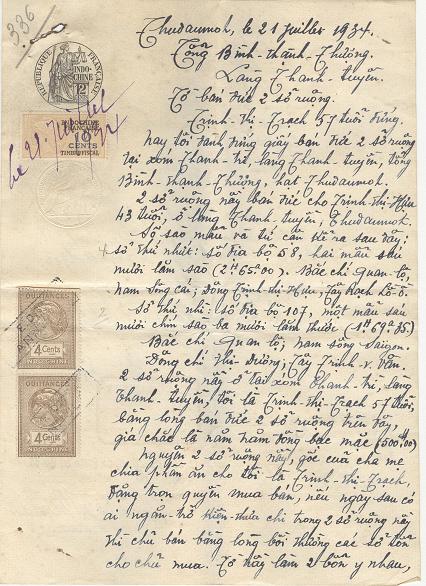 336
RÉPUBLIQUE FRANÇAISE
INDO-CHINE
12
INDOCHINE FRANÇAISE
CENTS
TIMBRE FISCAL
Thudaumot, le 21 juillet 1934.
Tổng Bình-thành-Thượng.
Làng Thanh-tuyền.
Tờ bán đứt 2 sở ruộng.
Trinh-thi-Trạch 57 tuổi đứng.
Nay tôi đành đứng giấy bán đứt 2 sở ruộng
tại xóm Thanh-trì, làng Thanh-tuyền, tổng
Bình-thanh-Thượng, hạt Thudaumot.
2 sở ruộng nầy bán đứt cho Trinh-thi-Hựu
43 tuổi, ở làng Thanh-tuyền, Thudaumot.
Số sào mẫu và tứ cận kể ra sau đây;
sở thứ nhứt: số địa bộ 58, hai mẫu sáu
mươi lăm sào (2H65a00). Bắc chỉ Quan-lộ,
nam sông cái; Đông Trinh-thi-Hựu; Tây Rạch
Sở thứ nhì: số địa bộ 107, một mẫu sáu
mươi chín sào ba mươi lăm thước (1H69a35)
Bắc chỉ Quan lộ; nam sông Saigon.
Đông chỉ thi-Dương; Tây Trinh-v-Vân.
2 sở ruộng nầy ở tại xóm Thanh-trì, làng
Thanh-tuyền, tôi là Trinh-thi-Trạch 57 tuổi,
bằng lòng bán đứt 2 sở ruộng trên đây,
giá chắc là năm trăm đồng bạc (500$00)
nguyên 2 sở ruộng nầy, gốc của cha mẹ
chia phần ăn cho tôi là Trinh-thi-Trạch,
đặng trọn quyền mua bán, nếu ngày sau có
ai ngăn-trở kiện-thưa chi trong 2 sở ruộng nầy
thì chủ bán bằng lòng bồi thường các sở tổn
cho chủ mua. Tờ nầy làm 2 bổn y nhau,
QUITTANCES
4 Cents
INDO-CHINE
QUITTANCES
4 Cents
INDO-CHINE